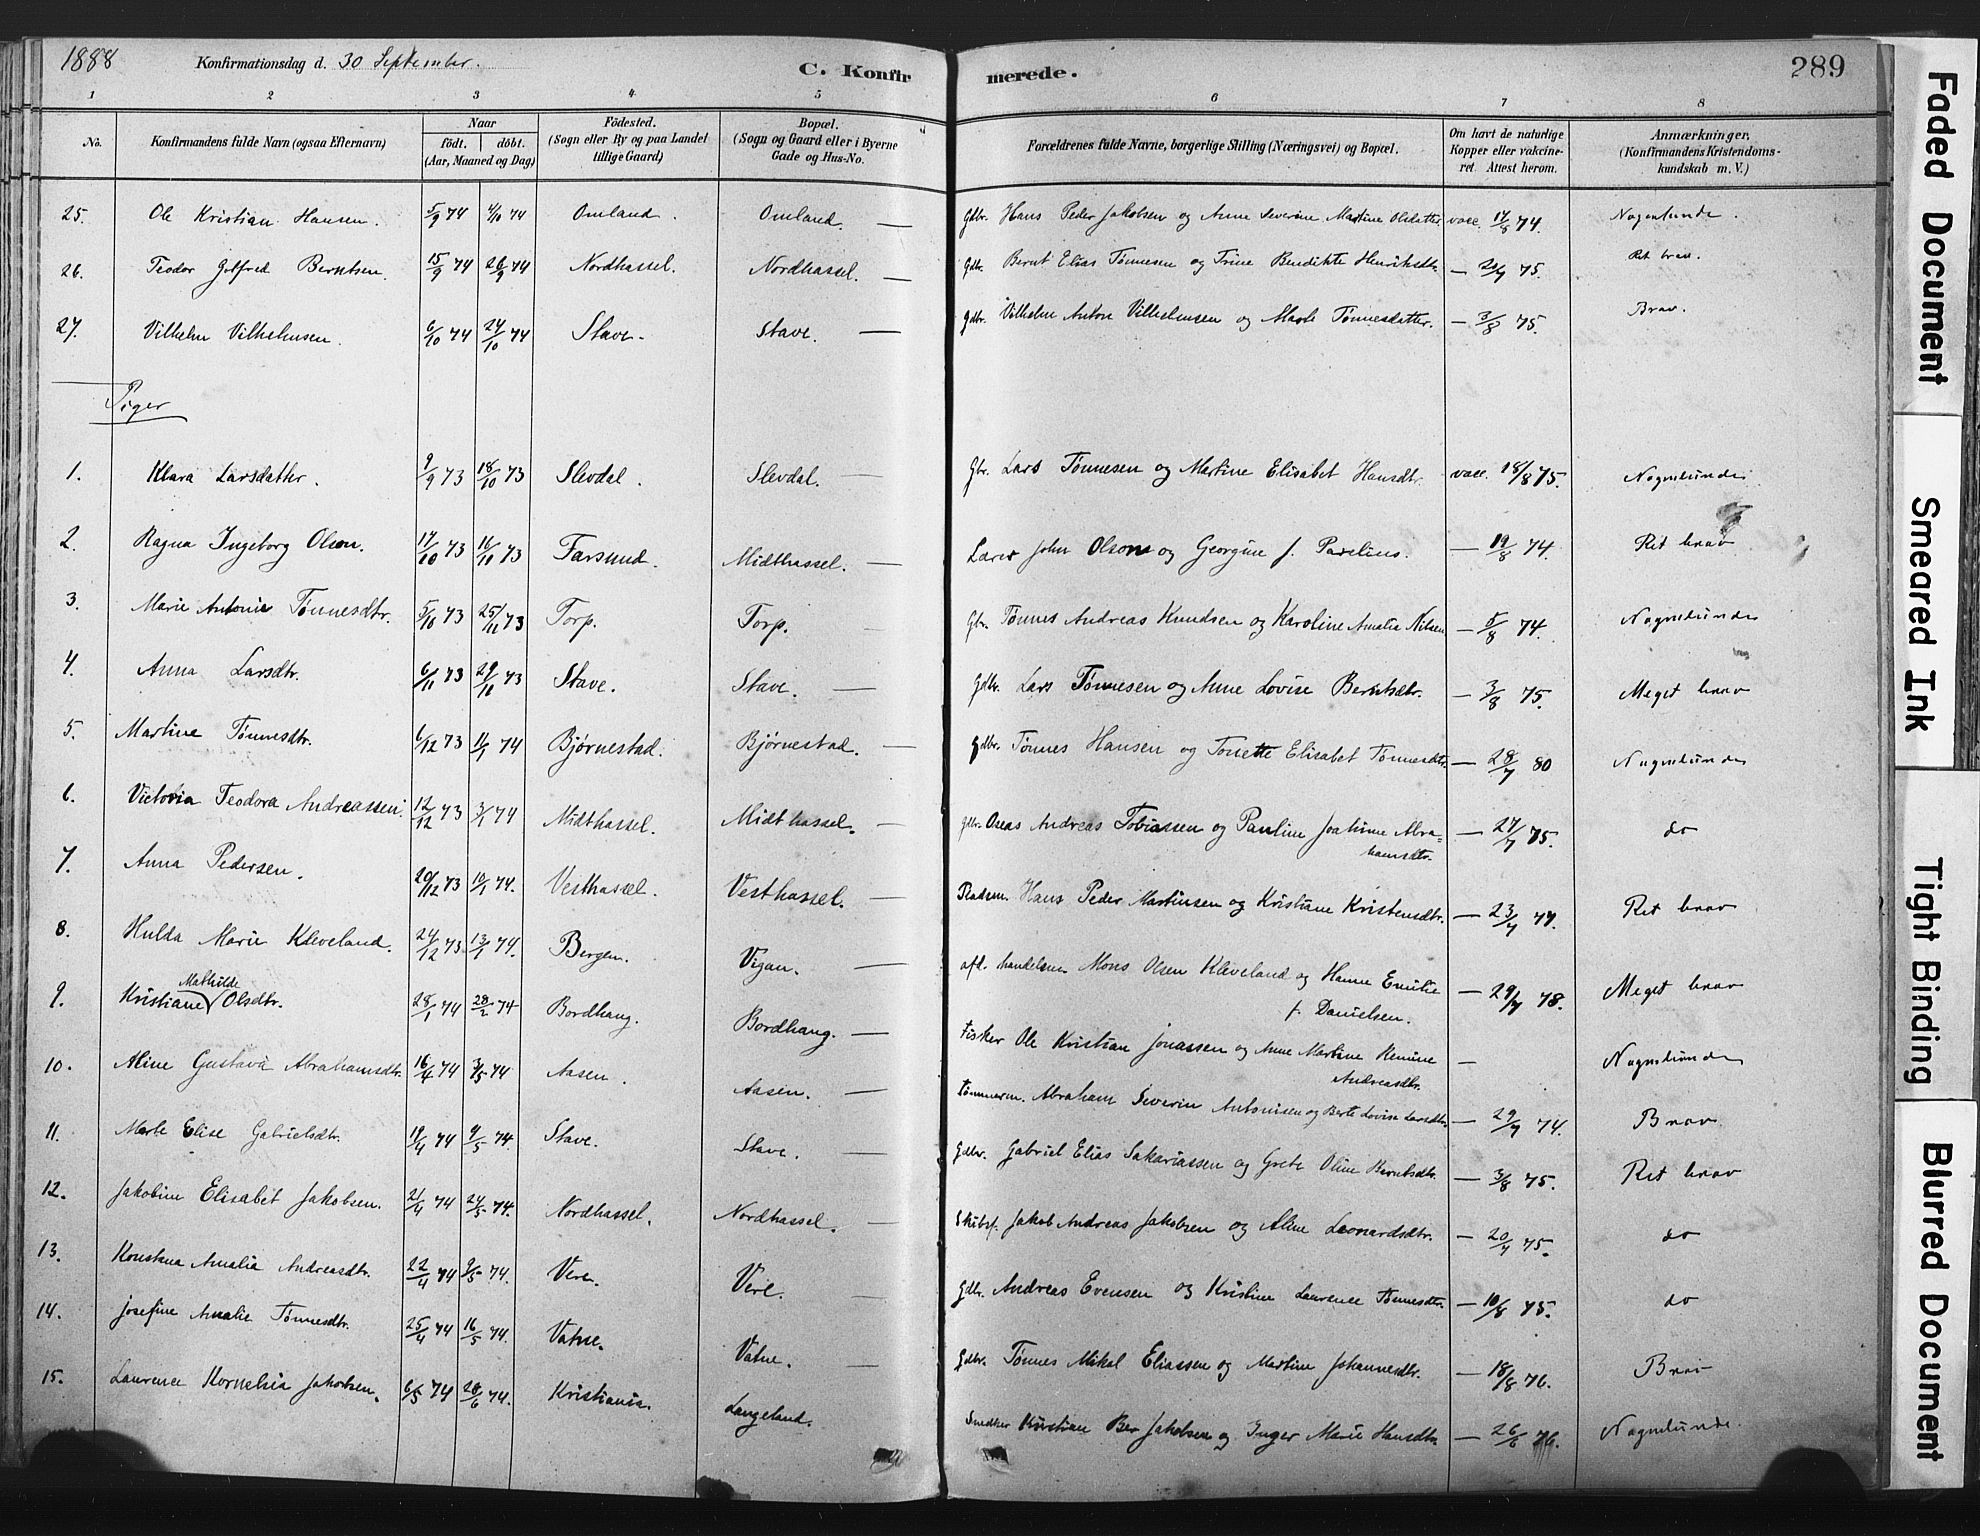 1888 Konfirmationsdag d. 30 September. C. Konfirmerede. 289
1 2 3 4 5 6 7 8
No. Konfirmandens fulde Navn (ogsaa Efternavn) Naar født. døbt. (Aar, Maaned og Dag) Fødested. (Sogn eller By og paa Landet tillige Gaard) Bopæl. (Sogn og Gaard eller i Byerne Gade og Hus-No. Forældrenes fulde Navne, borgerlige Stilling (Næringsvei) og Bopæl. Om havt de naturlige Kopper eller vakcineret. Attest herom. Anmærkninger. (Konfirmandens Kristendomskundskab m. V.)
25. Ole Kristian Hansen. 5/9 74 4/10 74 Omland. Omland. — Gdbr. Hans Peder Jakobsen og Anne Severine Martine Olsdatter vacc. 17/8 74. Nogenlunde.
26. Teodor Gotfred Berntsen. 15/9 74 26/9 74 Nordhassel. Nordhassel. — Gdbr. Bernt Elias Tønnesen og Trine Bendikte Henriksdtr. — 20/7 75. Ret brav.
27. Vilhelm Vilhelmsen. 6/10 74 24/10 74 Stave. Stave. — Gdbr. Vilhelm Anton Vilhelmsen og Marte Tønnesdatter. — 3/8 75. Brav.
Piger
1. Klara Larsdatter. 9/9 73 18/10 73 Slevdal. Slevdal. — Gbr. Lars Tønnesen og Martine Elisabet Hansdtr. vacc. 18/8 75. Nogenlunde
2. Ragna Ingeborg Olson. 17/10 73 16/11 73 Farsund. Midthassel. — Lærer John Olson og Georgine f. Parelius. — 19/8 74. Ret brav
3. Marie Antonie Tønnesdtr. 5/10 73 25/11 73 Torp. Torp. — Gbr. Tønnes Andreas Knudsen og Karoline Amalia Nilsen — 5/8 74. Nogenlunde
4. Anna Larsdtr. 6/11 73 29/10 73 Stave. Stave. — Gdbr. Lars Tønnesen og Anne Lovise Berntsdtr. — 3/8 75. Meget brav
5. Martine Tønnesdtr. 6/12 73 11/1 74 Bjørnestad. Bjørnestad. — Gdbr. Tønnes Hansen og Tonette Elisabet Tønnesdtr. — 28/7 80 Nogenlunde
6. Victoria Teodora Andreassen. 12/12 73 3/1 74 Midthassel. Midthassel. — Gdbr. Oseas Andreas Tobiassen og Pauline Joakime Abra-
hamsdtr. — 27/7 75. do
7. Anna Pedersen. 20/12 73 10/1 74. Vesthassel. Vesthassel. — Pladsm. Hans Peder Martinsen og Kristiane Kristensdtr. — 23/7 77. Ret brav
8. Hulda Marie Kleveland. 24/12 73 13/1 74. Bergen. Vigan. — afd. handelsm. Mons Olsen Kleveland og Hanne Emilie
f. Danielsen. — 29/7 78. Meget brav
9. Kristiane Mathilde Olsdtr. 28/1 74 28/2 74 Bordhaug. Bordhaug. — Fisker Ole Kristian Jonassen og Anne Martine Kemine
Andreasdtr. — Nogenlunde
10. Aline Gustava Abrahamsdtr. 16/4 74 3/5 74 Aasen. Aasen. — Tømmerm. Abraham Severin Antonisen og Berte Lovise Larsdtr. — 29/7 74. Brav.
11. Marte Elise Gabrielsdtr. 19/4 74 9/5 74. Stave. Stave. — Gdbr. Gabriel Elias Sakariassen og Grete Oline Berntsdtr. — 3/8 75. Ret brav
12. Jakobine Elisabet Jakobsen. 21/4 74 24/5 74. Nordhassel. Nordhassel. — Skibsf. Jakob Andreas Jakobsen og Aline Leonardsdtr. — 20/7 75. do
13. Konstana Amalia Andreasdtr. 22/4 74 9/5 74. Vere. Vere. — Gdbr. Andreas Evensen og Kristine Laurence Tønnesdtr. — 10/8 75. do
14. Josefine Amalie Tønnesdtr. 25/4 74 16/5 74. Vatne. Vatne. — Gdbr. Tønnes Mikal Eliassen og Martine Johannesdtr. — 18/8 76. Brav
15. Laurence Kornelia Jakobsen. 6/5 74 28/6 74. Kristiania. Langeland. Snedker Kristian Ber Jakobsen og Inger Marie Hansdtr. — 26/6 76. Nogenlunde.
Faded Document
Smeared Ink
Tight Binding
Blurred Document